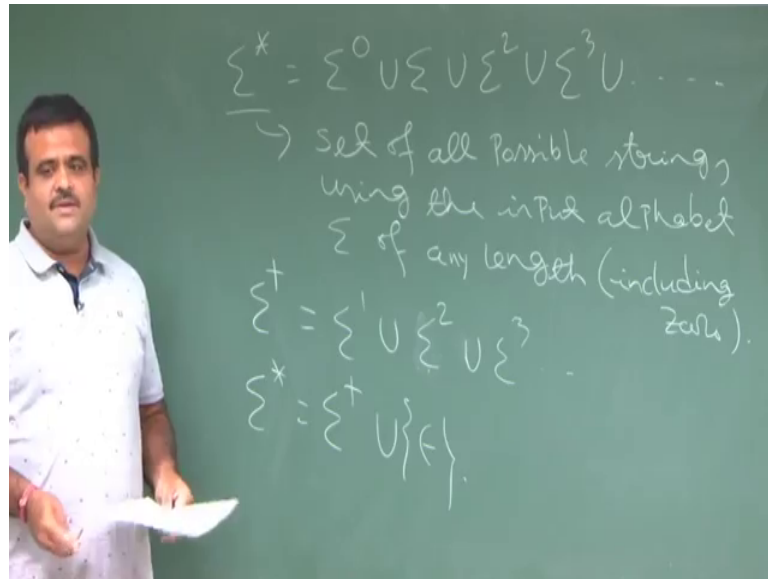 Σ* = Σ⁰ ∪ Σ ∪ Σ² ∪ Σ³ ∪ . . . .
→ set of all Possible string,
using the input alphabet
Σ of any length (including
zero).
Σ⁺ = Σ¹ ∪ Σ² ∪ Σ³ ..
Σ* = Σ⁺ ∪ {ϵ}.